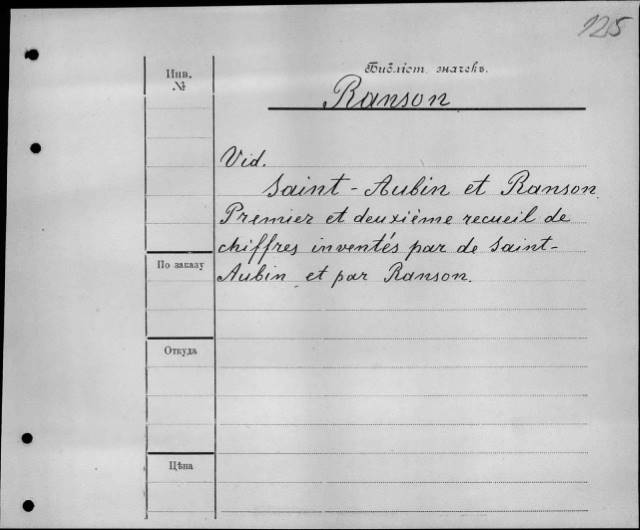 125
Инв.
№
Библіот. значекъ.
Ranson
Vid.
Saint-Aubin et Ranson
Premier et deuxième recueil de
chiffres inventés par de Saint-
Aubin et par Ranson.
По заказу
Откуда
Цѣна